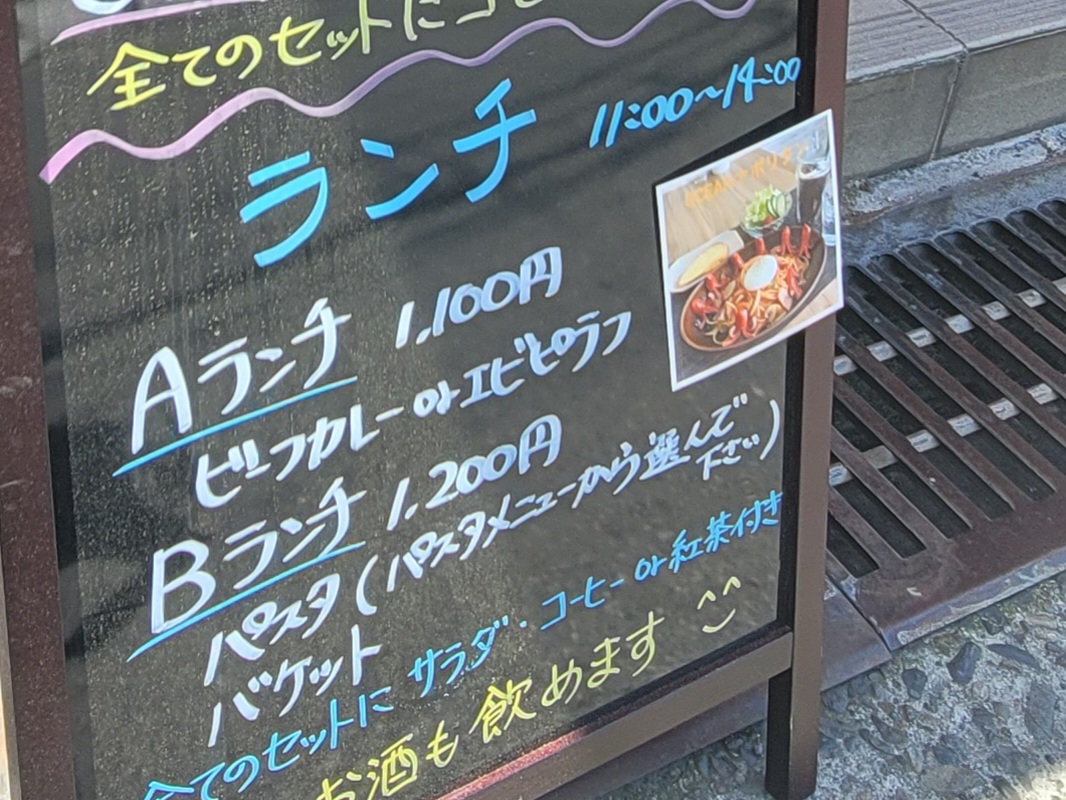 全てのセットに
ランチ 11:00〜14:00
Aランチ 1,100円
ビーフカレー or エビピラフ
Bランチ 1,200円
パスタ(パスタメニューから選んで下さい)
バケット
全てのセットに サラダ・コーヒー or 紅茶付き
お酒も飲めます ^^